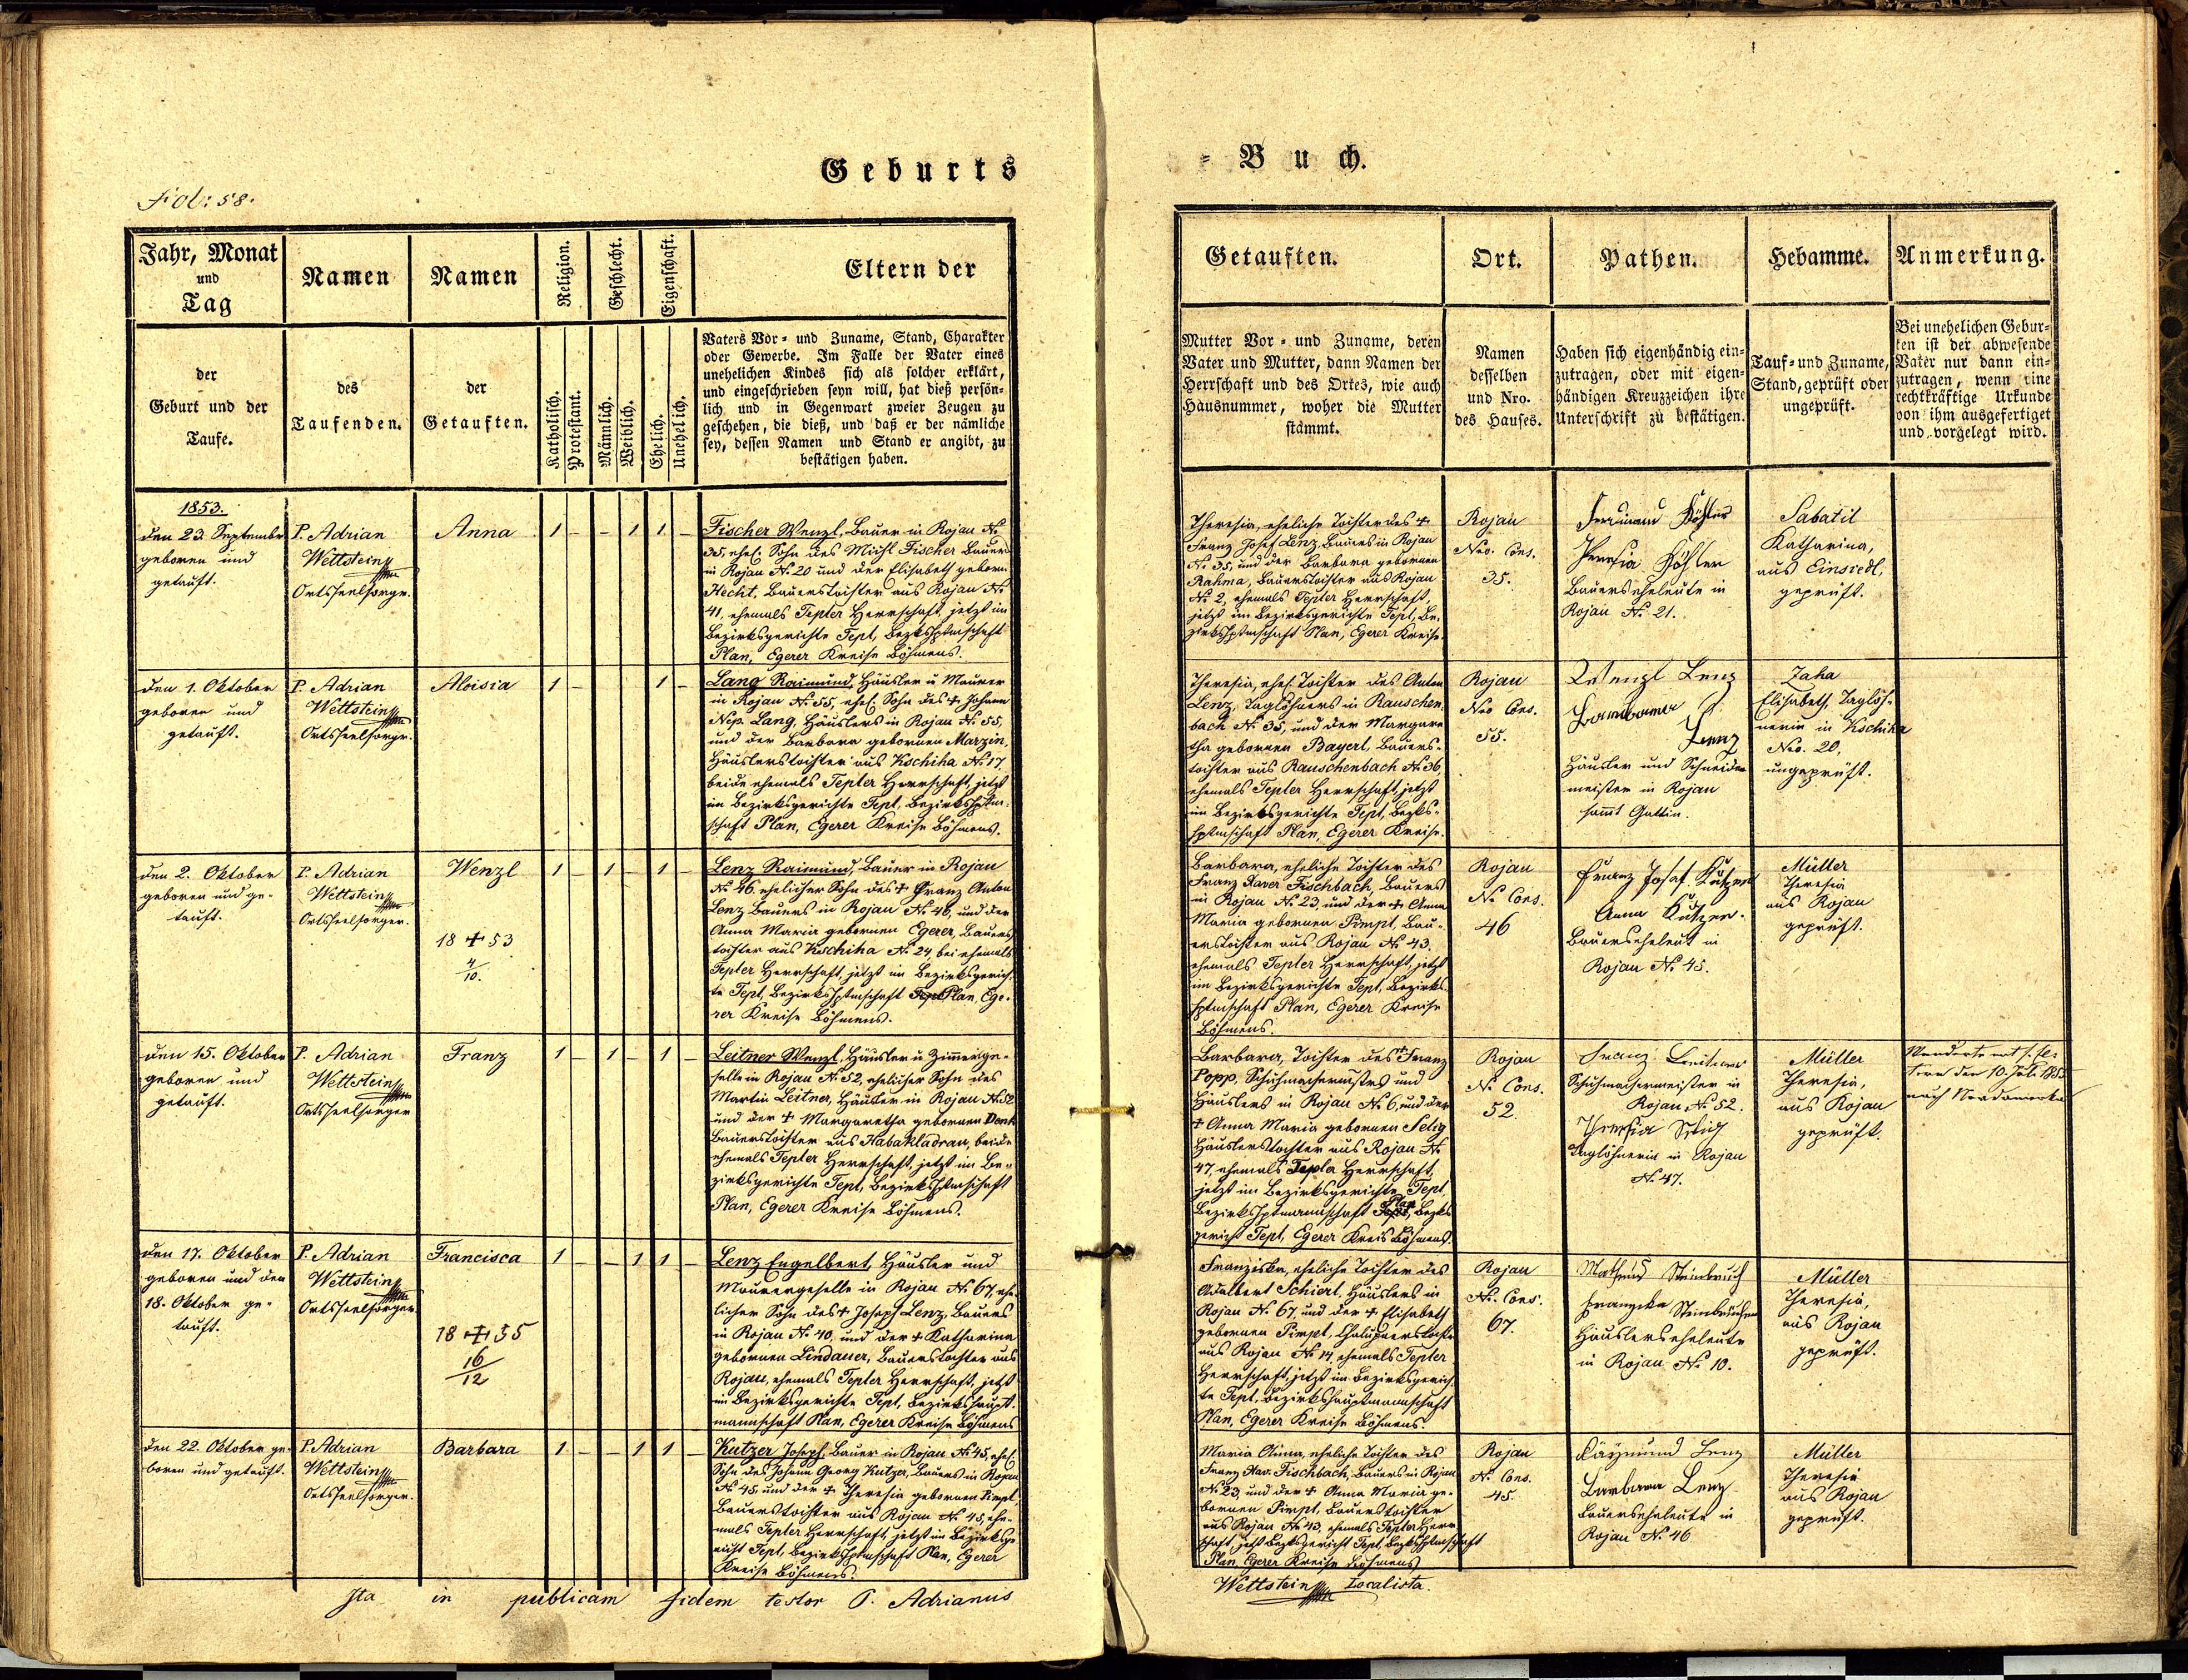 Geburts
= Buch.
Fol: 58.
Jahr, Monat
und
Tag
Namen
Namen
Religion.
Geschlecht.
Eigenschaft.
Eltern der
der
Geburt und der
Taufe.
des
Taufenden.
der
Getauften.
Katholisch.
Protestant.
Männlich.
Weiblich.
Ehelich.
Unehelich.
Vaters Vor- und Zuname, Stand, Charakter
oder Gewerbe. Im Falle der Vater eines
unehelichen Kindes sich als solcher erklärt,
und eingeschrieben seyn will, hat dieß persön-
lich und in Gegenwart zweier Zeugen zu
geschehen, die dieß, und daß er der nämliche
sey, dessen Namen und Stand er angibt, zu
bestätigen haben.
Getauften.
Ort.
Pathen.
Hebamme.
Anmerkung.
Mutter Vor- und Zuname, deren
Vater und Mutter, dann Namen der
Herrschaft und des Ortes, wie auch
Hausnummer, woher die Mutter
stammt.
Namen
desselben
und Nro.
des Hauses.
Haben sich eigenhändig ein-
zutragen, oder mit eigen-
händigen Kreuzzeichen ihre
Unterschrift zu bestätigen.
Tauf- und Zuname,
Stand, geprüft oder
ungeprüft.
Bei unehelichen Gebur-
ten ist der abwesende
Vater nur dann ein-
zutragen, wenn eine
rechtkräftige Urkunde
von ihm ausgefertiget
und vorgelegt wird.
1853.
den 23. September
geboren und
getauft.
P. Adrian
Wettstein
Ortsseelsorger.
Anna
1 - - 1 1 -
Fischer Wenzl, Bauer in Rojau No
35, ehel. Sohn des Michl Fischer Bauers
in Rojau No 20 und der Elisabeth geborn.
Hecht, Bauerstochter aus Rojau No
41, ehemals Tepler Herrschaft, jetzt im
Bezirksgerichte Tepl, Bezkshptmschaft
Plan, Egerer Kreise Böhmens.
Theresia, eheliche Tochter des +
Franz Josef Lenz, Bauers in Rojau
No 35, und der Barbara gebornen
Rahma, Bauerstochter aus Rojau
No 2, ehemals Tepler Herrschaft,
jetzt im Bezirksgerichte Tepl, Be-
zirkshptmschaft Plan, Egerer Kreise.
Rojau
Nro. Cons.
35.
Theresia Köhler
Bauerseheleute in
Rojau No 21.
Sabatil
Katharina,
aus Einsiedl,
geprüft.
den 1. Oktober
geboren und
getauft.
P. Adrian
Wettstein
Ortsseelsorger.
Aloisia
1 - 1 -
Lang Raimund, Häusler u Maurer
in Rojau No 55, ehel. Sohn des +, Johann
Nep. Lang, Häuslers in Rojau No 55,
und der Barbara gebornen Marzin,
Häuslerstochter aus Kschiha No 17,
beide ehemals Tepler Herrschaft, jetzt
im Bezirksgerichte Tepl, Bezirkshptm-
schaft Plan, Egerer Kreise Böhmens.
Theresia, ehel. Tochter des Anton
Lenz, Taglöhners in Rauschen-
bach No 35, und der Margare-
tha gebornen Bayerl, Bauers-
tochter aus Rauschenbach No 36,
ehemals Tepler Herrschaft, jetzt
im Bezirksgerichte Tepl, Bezks-
hptmschaft Plan, Egerer Kreise.
Rojau
Nro Cons.
55.
Wenzl Lenz
Barbara
Lenz
Häusler und Schneider-
meister in Rojau
sammt Gattin.
Zaha
Elisabeth, Taglöh-
nerin in Kschiha
Nro. 20,
ungeprüft.
den 2. Oktober
geboren und ge-
tauft.
P. Adrian
Wettstein
Ortsseelsorger.
Wenzl
18 + 53
4/10.
1 - 1 - 1 -
Lenz Raimund, Bauer in Rojau
No 46, ehelicher Sohn des + Franz Anton
Lenz Bauers in Rojau No 46, und der
Anna Maria gebornen Egerer, Bauers-
tochter aus Kschiha No 24, bei ehemals
Tepler Herrschaft, jetzt im Bezirksgerich-
te Tepl, Bezirkshptmschaft Tepl Plan, Ege-
rer Kreise Böhmens.
Barbara, eheliche Tochter des
Franz Xaver Fischbach, Bauers
in Rojau No 23, und der + Anna
Maria gebornen Pimpl, Bau-
erstochter aus Rojau No 43,
ehemals Tepler Herrschaft, jetzt
im Bezirksgerichte Tepl, Bezirks-
hptmschaft Plan, Egerer Kreise
Böhmens.
Rojau
No Cons.
46
Franz Josef Kutzer
Anna Kutzer.
Bauerseheleut in
Rojau No 45.
Müller
Theresia
aus Rojau
geprüft.
den 15. Oktober
geboren und
getauft.
P. Adrian
Wettstein
Ortsseelsorger
Franz
1 - 1 - 1 -
Leitner Wenzl, Häusler u Zimmerge-
selle in Rojau No 52, ehelicher Sohn des
Martin Leitner, Häusler in Rojau No 52
und der + Margaretha gebornen Denk
Bauerstochter aus Habakladrau, beide
ehemals Tepler Herrschaft, jetzt im Be-
zirksgerichte Tepl, Bezirkshptmschaft
Plan, Egerer Kreise Böhmens.
Barbara, Tochter des + Franz
Popp, Schuhmachermstrs und
Häuslers in Rojau No 6, und der
+ Anna Maria gebornen Selig
Häuslerstochter aus Rojau No
47, ehemals Tepla Herrschaft,
jetzt im Bezirksgerichte Tepl,
Bezirkshptmannschaft Plan, Bezks
gericht Tepl, Egerer Kreis Böhmens.
Rojau
No Cons.
52.
Franz Leitner
Schuhmachermeister in
Rojau No 52.
Theresia Selig
Taglöhnerin in Rojau
No 47.
Müller
Theresia,
aus Rojau
geprüft.
nach Nordamerika
den 17. Oktober
geboren und den
18. Oktober ge-
tauft.
P. Adrian
Wettstein
Ortsseelsorger.
Francisca
18 + 55
16/12
1 - - 1 1 -
Lenz Engelbert, Häusler und
Maurergeselle in Rojau No 67, ehe-
licher Sohn des + Joseph Lenz, Bauers
in Rojau No 40, und der + Katharina
gebornen Lindauer, Bauerstochter aus
Rojau, ehemals Tepler Herrschaft, jetzt
im Bezirksgerichte Tepl, Bezirkshaupt-
mannschaft Plan, Egerer Kreise Böhmens
Franziska, eheliche Tochter des
Adalbert Schierl, Häuslers in
Rojau No 67, und der + Elisabeth
gebornen Pimpl, Chalupnerstochter
aus Rojau No 14, ehemals Tepler
Herrschaft, jetzt im Bezirksgerich-
te Tepl, Bezirkshauptmannschaft
Plan, Egerer Kreise Böhmens.
Rojau
No. Cons.
67.
Steinbruch
Häuslerseheleute
in Rojau No 10.
Müller
Theresia,
aus Rojau
geprüft.
den 22. Oktober ge-
boren und getauft.
P. Adrian
Wettstein
Ortsseelsorger.
Barbara
1 - - 1 1 -
Kutzer Joseph, Bauer in Rojau No 45, ehel.
Sohn des Johann Georg Kutzer, Bauers in Rojau
No 45 und der + Theresia gebornen Pimpl
Bauerstochter aus Rojau No 45, ehe-
mals Tepler Herrschaft, jetzt im Bezirksge-
richt Tepl, Bezirkshptmschaft Plan, Egerer
Kreise Böhmens.
Maria Anna, eheliche Tochter des
Franz Xav. Fischbach, Bauers in Rojau
No 23, und der + Anna Maria ge-
bornen Pimpl, Bauerstochter
aus Rojau No 43, ehemals Tepler Herr-
schaft, jetzt Bezksgericht Tepl, Bezkshptmschaft
Plan, Egerer Kreise Böhmens
Rojau
No. Cons.
45.
Raymund Lenz
Barbara Lenz
Bauerseheleute in
Rojau No 46
Müller
Theresia
aus Rojau
geprüft.
Ita in publicam fidem testor P. Adrianus
Wettstein Localista.